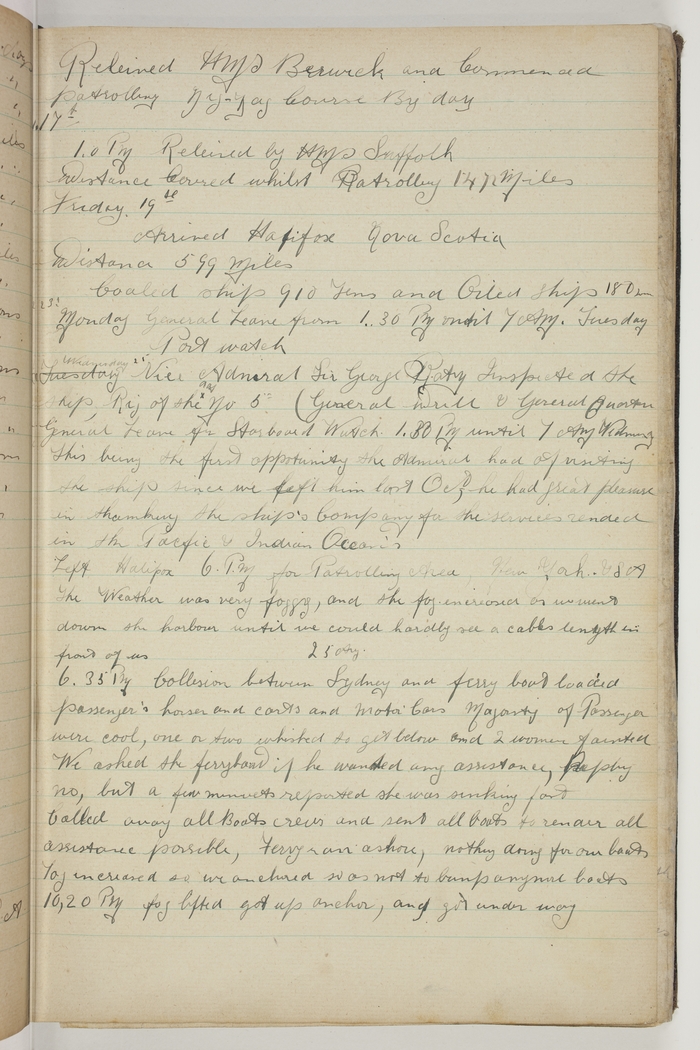 Releived HMS Berwick and Commenced
patrolling Zig-Zag Course By day
17th
1.0 PM Releived by HMS Suffolk
Distance Covered whilst Patrolling 147 Miles
Friday 19th
Arrived Halifax Nova Scotia
Distance 599 Miles
Coaled ship 910 Tons and Oiled ship 180
Monday General Leave from 1.30 PM until 7 AM. Tuesday
Port watch
Wednesday
Tuesday Vice Admiral Sir George Inspected the
ship Rig of the No 5 (General Drill & General Quarters
General Leave for Starboard Watch 1.30 PM until 7 AM
This being the first opportunity the Admiral had of visiting
the ship since we left him last Oct, he had great pleasure
in thanking the ship's Company for the services rended
in the Pacfic & Indian Ocean's
Left Halifax 6. P.M for Patrolling Area, New York.
The Weather was very foggy, and the fog increased as we went
down the harbour until we could hardly see a cables length in
front of us
6.35 PM Collesion between Sydney and ferry boat loaded
passenger's horses and carts and Motor Cars Majority of Passenger
were cool, one or two whisted to get below and 2 women fainted
We asked the ferryboat if he wanted any assistance,
no, but a few minuets reported she was sinking fast
Called away all Boats crews and sent all boats to render all
assistance possible, Ferry ran ashore, nothing doing for our boats
Fog increased so we anchored so as not to bump any more boats
10,20 PM fog lifted got up anchor, and got under way